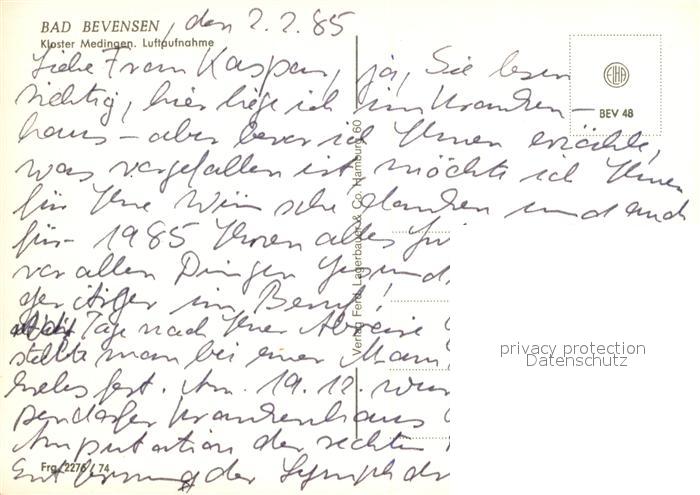 BAD BEVENSEN, den 2.2.85
Kloster Medingen. Luftaufnahme
Liebe Frau Kaspar, ja, Sie lesen
richtig, hier liege ich im Kranken-
haus - aber bevor ich Ihnen erzähle,
was vorgefallen ist, möchte ich Ihnen
für Ihre Wünsche danken und auch
für 1985 Ihnen alles
vor allen Dingen Gesund
im Beruf!
Tage nach Ihrer Abreise
stellte man bei einer
fest. Am 19.12. wur
Krankenhaus
Amputation der rechten
Entfernung der Lymphdr
EIHA
BEV 48
Verlag Ferd. Lagerbauer & Co. Hamburg 60
Frg. 2276 / 74
privacy protection
Datenschutz